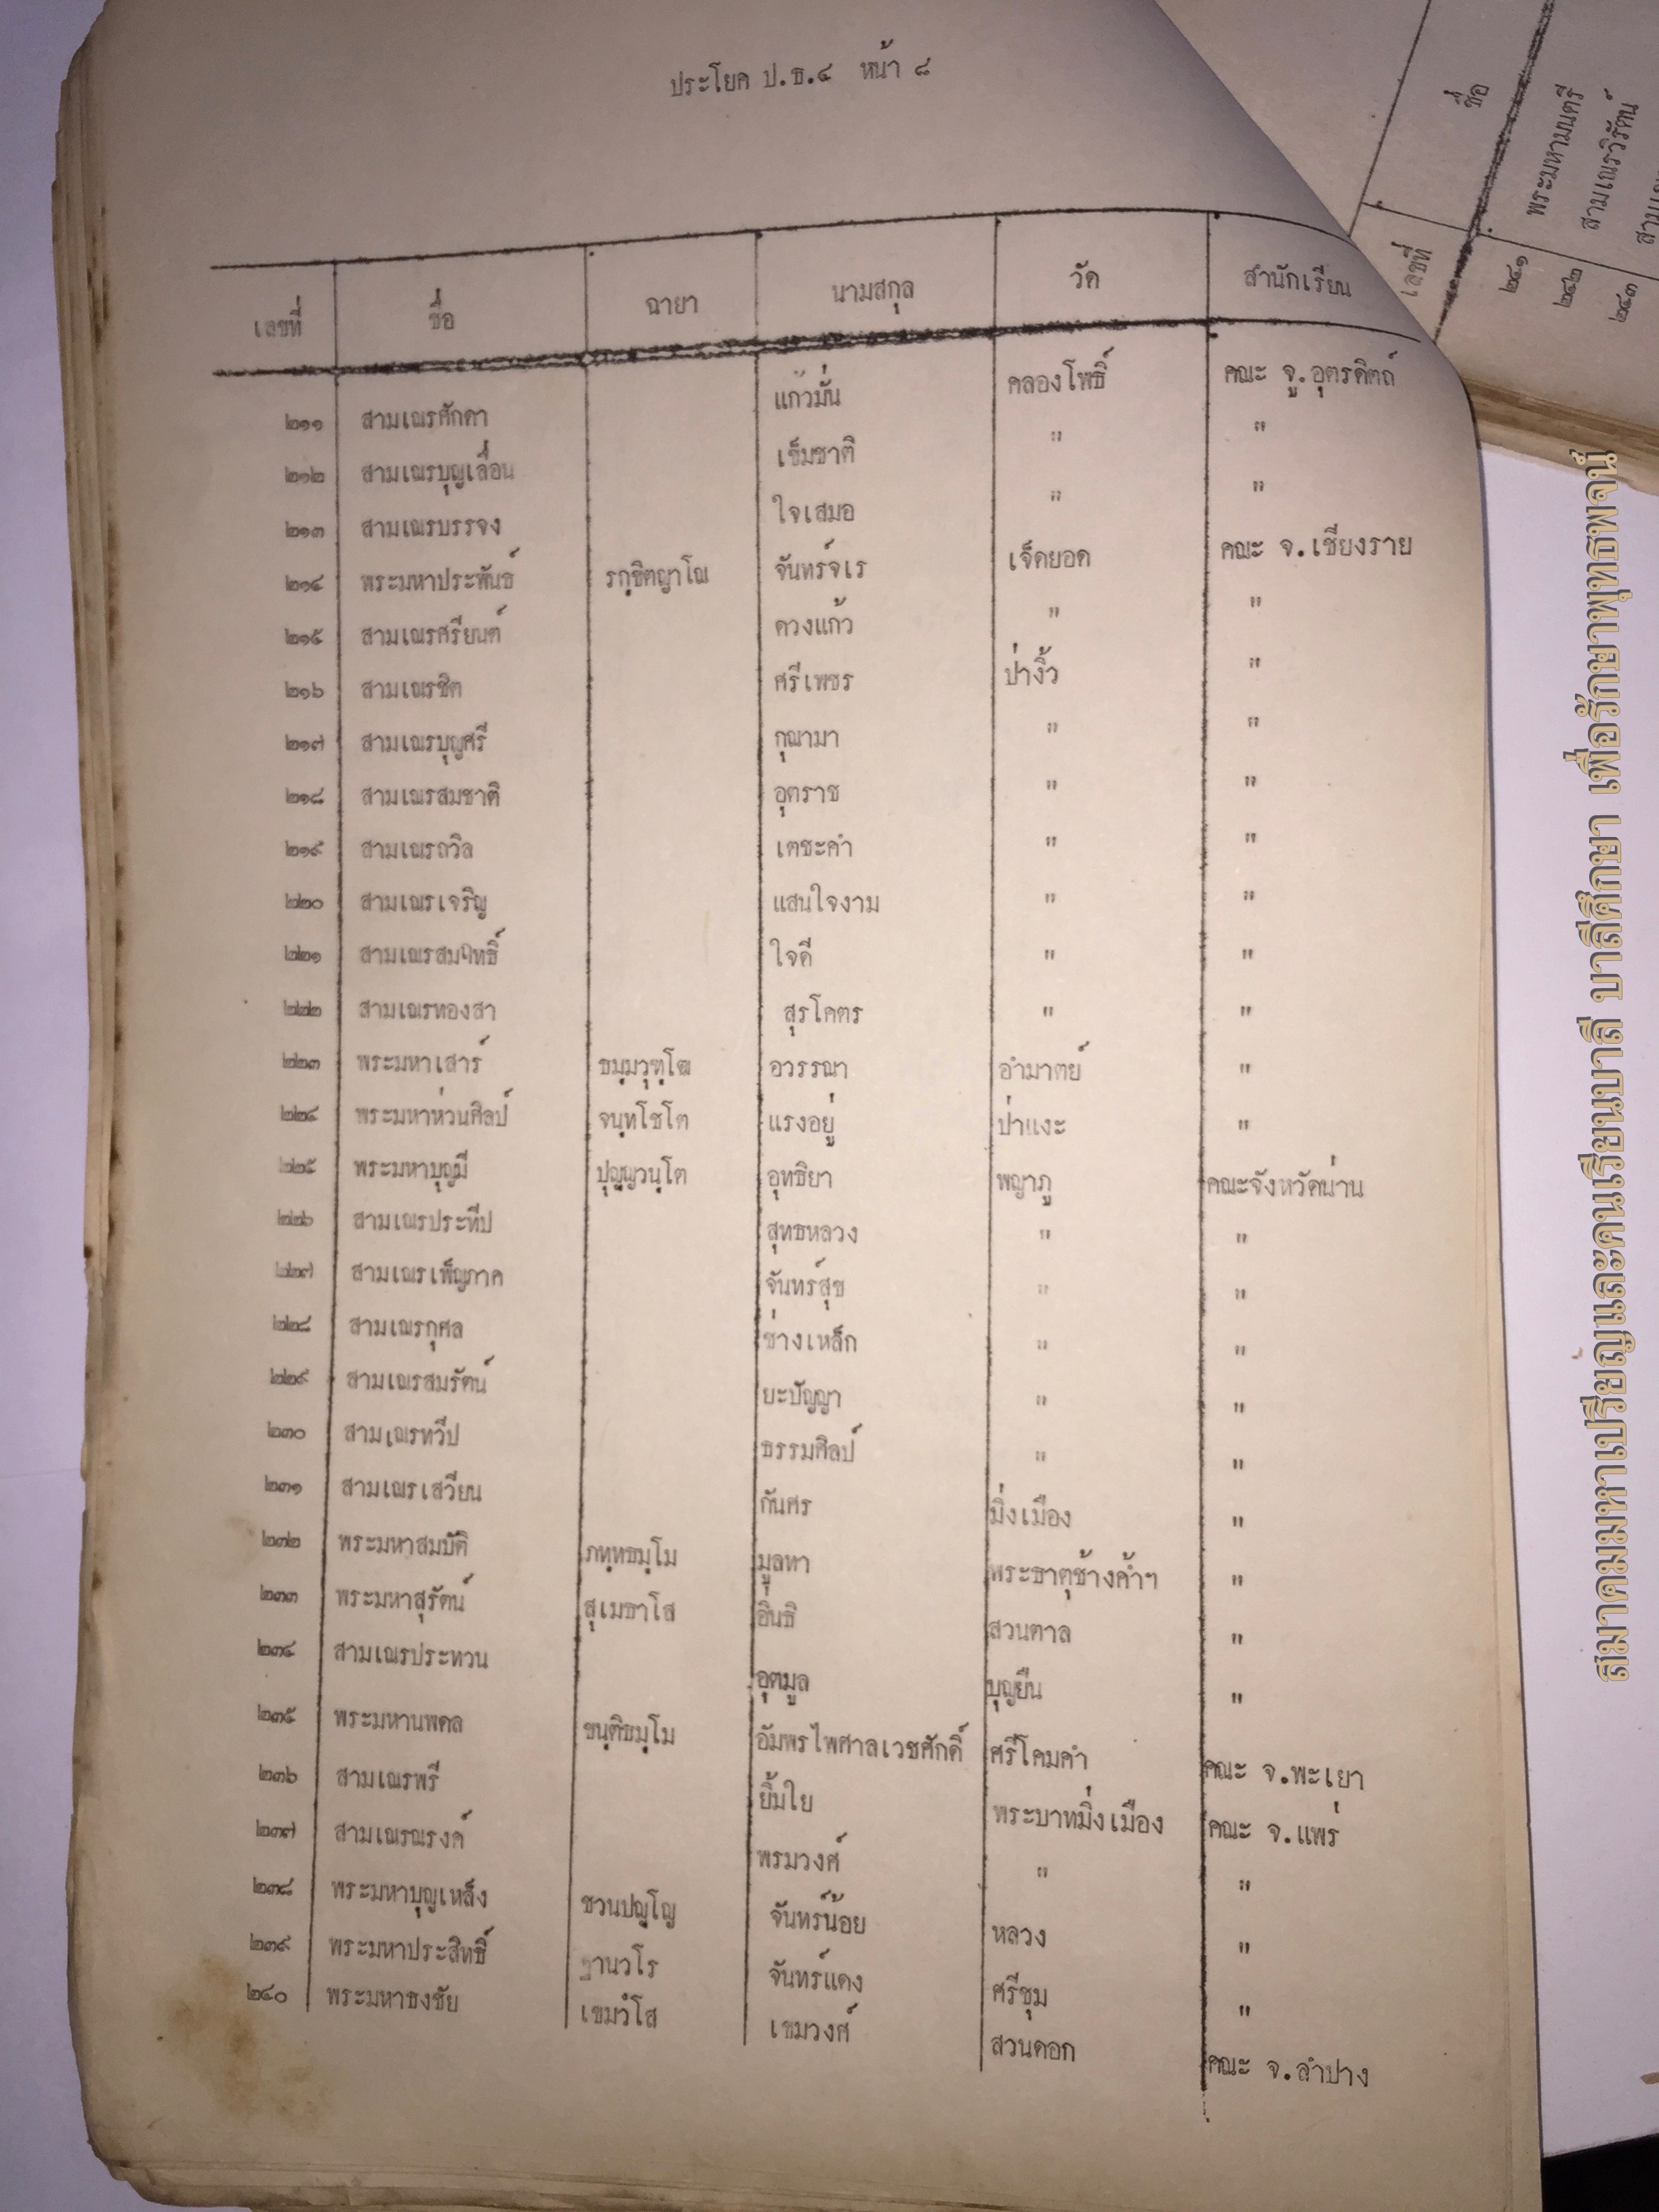 ประโยค ป.ธ.๔ หน้า ๘
เลขที่ ชื่อ ฉายา นามสกุล วัด สำนักเรียน
๒๑๑ สามเณรศักดา แก้วมั่น คลองโพธิ์ คณะ จ.อุตรดิตถ์
๒๑๒ สามเณรบุญเลื่อน เข็มชาติ " "
๒๑๓ สามเณรบรรจง ใจเสมอ " "
๒๑๔ พระมหาประพันธ์ รกฺขิตญาโณ จันทร์จเร เจ็ดยอด คณะ จ.เชียงราย
๒๑๕ สามเณรศรียนต์ ดวงแก้ว " "
๒๑๖ สามเณรชิต ศรีเพชร ป่างิ้ว "
๒๑๗ สามเณรบุญศรี กุณามา " "
๒๑๘ สามเณรสมชาติ อุตราช " "
๒๑๙ สามเณรถวิล เตชะคำ " "
๒๒๐ สามเณรเจริญ แสนใจงาม " "
๒๒๑ ใจดี " "
๒๒๒ สามเณรทองสา สุรโคตร " "
๒๒๓ พระมหาเสาร์ ธมฺมวุฑฺโฒ อวรรณา อำมาตย์ "
๒๒๔ พระมหาห่วนศิลป์ จนฺทโชโต แรงอยู่ ป่าแงะ "
๒๒๕ พระมหาบุญมี ปุญฺญวนฺโต อุทธิยา พญาภู คณะจังหวัดน่าน
๒๒๖ สามเณรประทีป สุทธหลวง " "
๒๒๗ สามเณรเพ็ญภาค จันทร์สุข " "
๒๒๘ สามเณรกุศล ช่างเหล็ก " "
๒๒๙ สามเณรสมรัตน์ ยะปัญญา " "
๒๓๐ สามเณรทวีป ธรรมศิลป์ " "
๒๓๑ สามเณรเสวียน กันศร มิ่งเมือง "
๒๓๒ พระมหาสมบัติ ภทฺทธมฺโม มูลทา พระธาตุช้างค้ำฯ "
๒๓๓ พระมหาสุรัตน์ สุเมธาโส อินธิ สวนตาล "
๒๓๔ สามเณรประทวน อุตมูล บุญยืน "
๒๓๕ พระมหานพดล ขนฺติธมฺโม อัมพรไพศาลเวชศักดิ์ ศรีโคมคำ คณะ จ.พะเยา
๒๓๖ สามเณรพรี ยิ้มใย พระบาทมิ่งเมือง คณะ จ.แพร่
๒๓๗ สามเณรณรงค์ พรมวงศ์ " "
๒๓๘ พระมหาบุญเหล็ง ชวนปญฺโญ จันทร์น้อย หลวง "
๒๓๙ พระมหาประสิทธิ์ ฐานวโร จันทร์แดง ศรีชุม "
๒๔๐ พระมหาธงชัย เขมวํโส เขมวงศ์ สวนดอก คณะ จ.ลำปาง
เลขที่ ชื่อ
๒๔๑ พระมหามนตรี
๒๔๒ สามเณรวิรัตน์
๒๔๓
สมาคมมหาเปรียญและคนเรียนบาลี บาลีศึกษา เพื่อรักษาพุทธพจน์